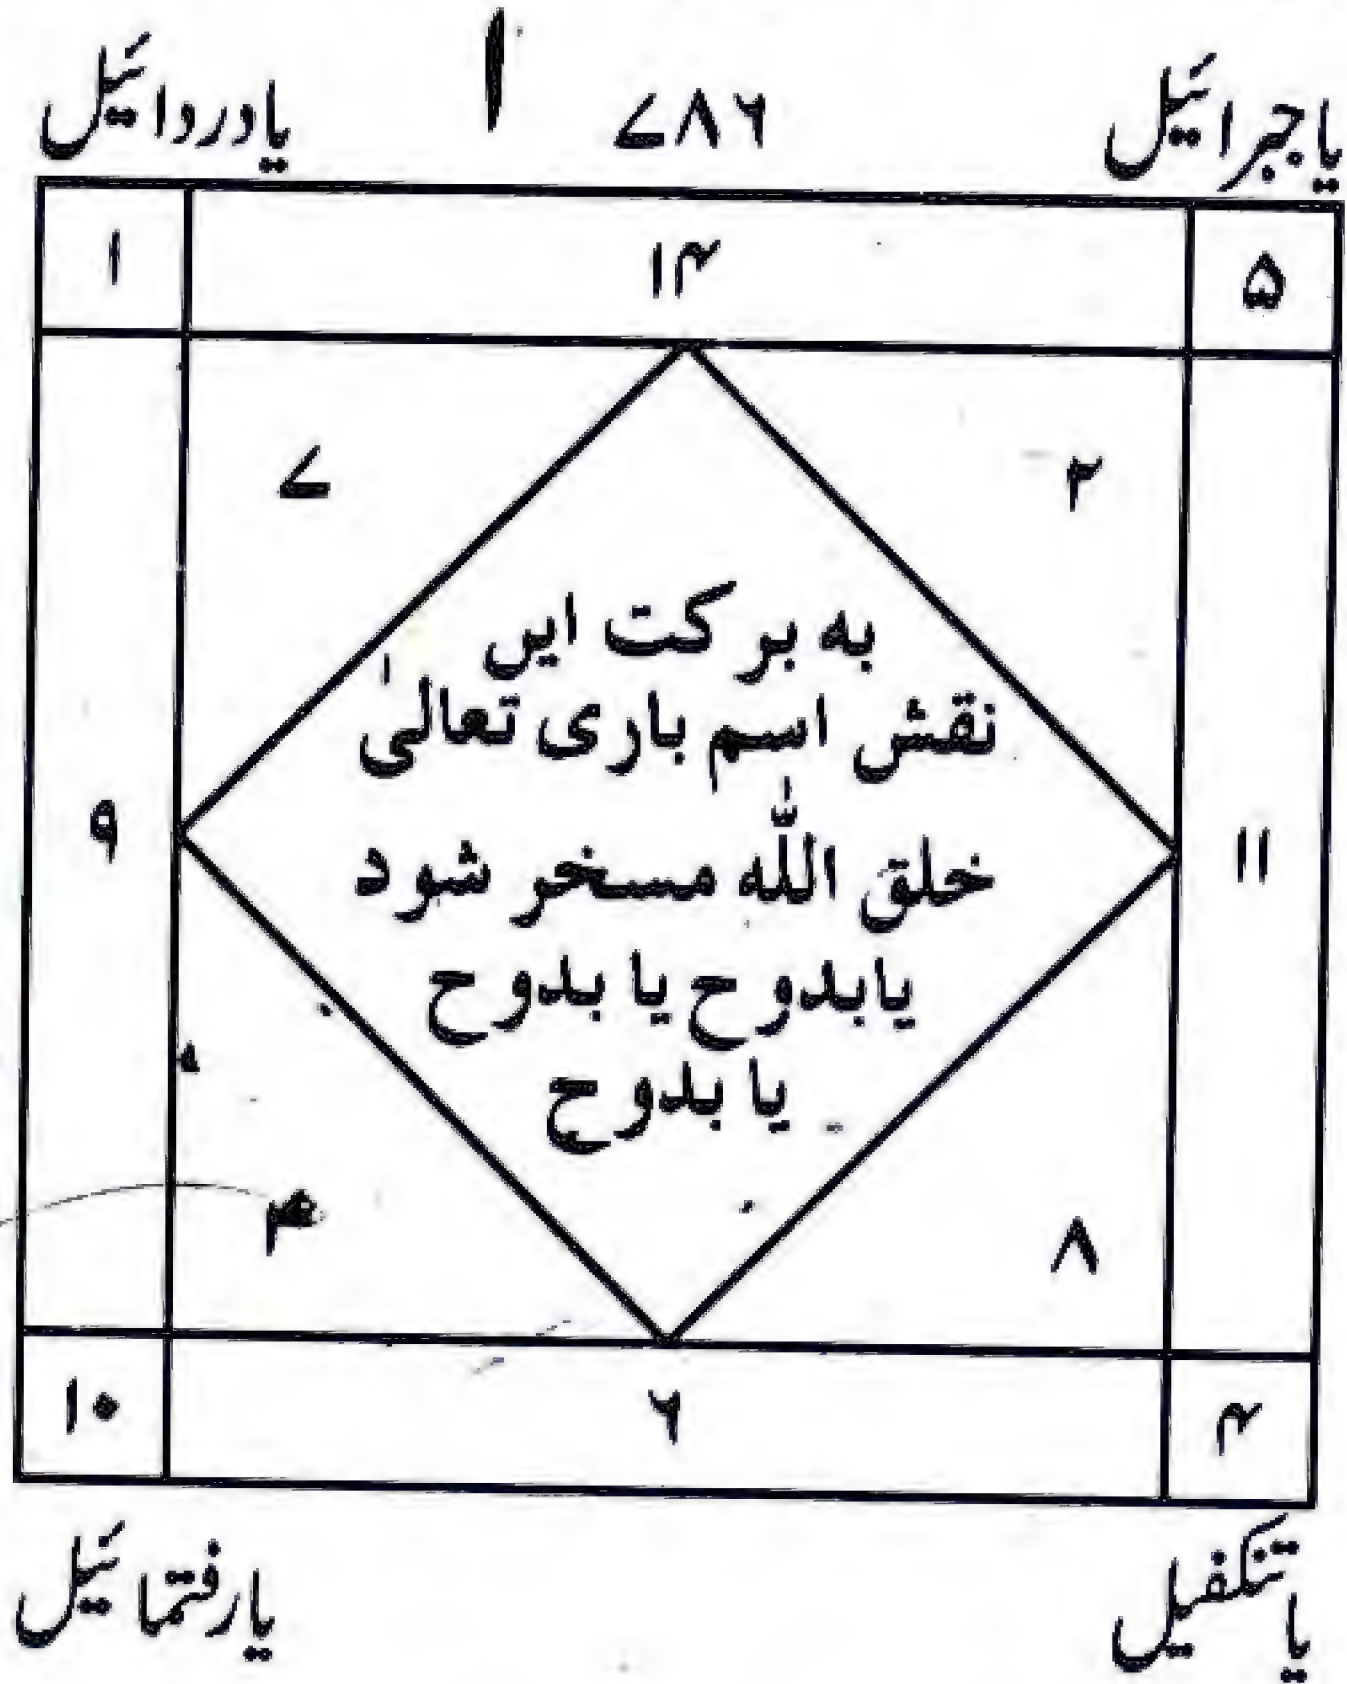 یا جبرائیل ۷۸۶ ا یا دردائیل
۵ ۱۴ ۱
۲ ۷
به برکت ایں
نقش اسم باری تعالیٰ
۱۱ خلق اللّٰه مسخر شود ۹
یا بدوح یا بدوح
یا بدوح
۸
۴ ۶ ۱۰
یا تنکفیل یا رفتمائیل